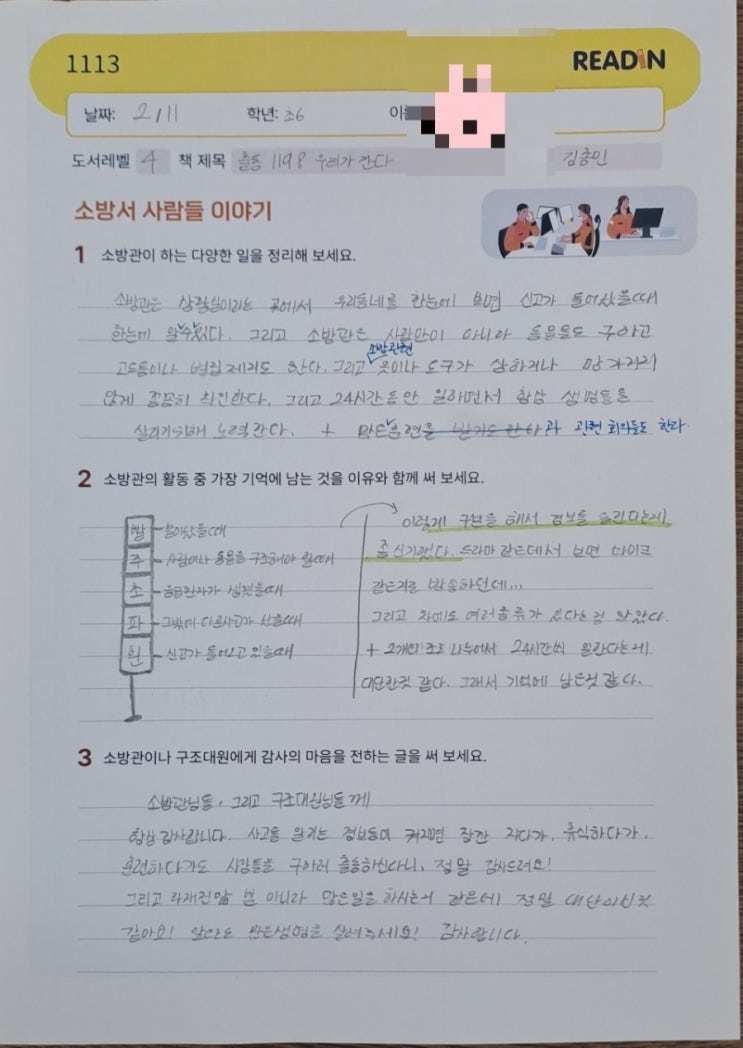 1113
READiN
날짜: 2/11 학년: 초6 이름
도서레벨 4 책 제목 출동 119! 우리가 간다 김종민
소방서 사람들 이야기
1 소방관이 하는 다양한 일을 정리해 보세요.
소방관은 상황실이라는 곳에서 우리동네를 한눈에 보면 신고가 들어왔을때
한눈에 알 수 있다. 그리고 소방관은 사람만이 아니라 동물들도 구하고
고드름이나 벌집 제거도 한다. 그리고 소방관련 옷이나 도구가 상하거나 망가지지
않게 꼼꼼히 확인한다. 그리고 24시간동안 일하면서 항상 생명들을
살리기위해 노력한다. + 많은 훈련 과 관련 회의들도 한다.
2 소방관의 활동 중 가장 기억에 남는 것을 이유와 함께 써 보세요.
빨 - 불이났을때
주 - 사람이나 동물을 구조해야 할때
초 - 응급환자가 생겼을때
파 - 그밖에 다른사고가 났을때
흰 - 신고가 들어오고 있을때
이렇게 구분을 해서 경보를 울린다는게,
좀 신기했다. 드라마 같은데서 보면 마이크
같은거로 방송하던데...
그리고 차에도 여러종류가 있다는걸 알았다.
+ 2개의 조로 나누어서 24시간씩 일한다는게
대단한것 같다. 그래서 기억에 남는것 같다.
3 소방관이나 구조대원에게 감사의 마음을 전하는 글을 써 보세요.
소방관님들, 그리고 구조대원님들께
항상 감사합니다. 사고를 알리는 경보등이 켜지면 잠깐 자다가, 휴식하다가,
훈련하다가도 사람들을 구하러 출동하신다니, 정말 감사드려요!
그리고 화재진압 뿐 아니라 많은일을 하시는거 같은데 정말 대단하신것
같아요! 앞으로도 많은생명을 살려주세요! 감사합니다.